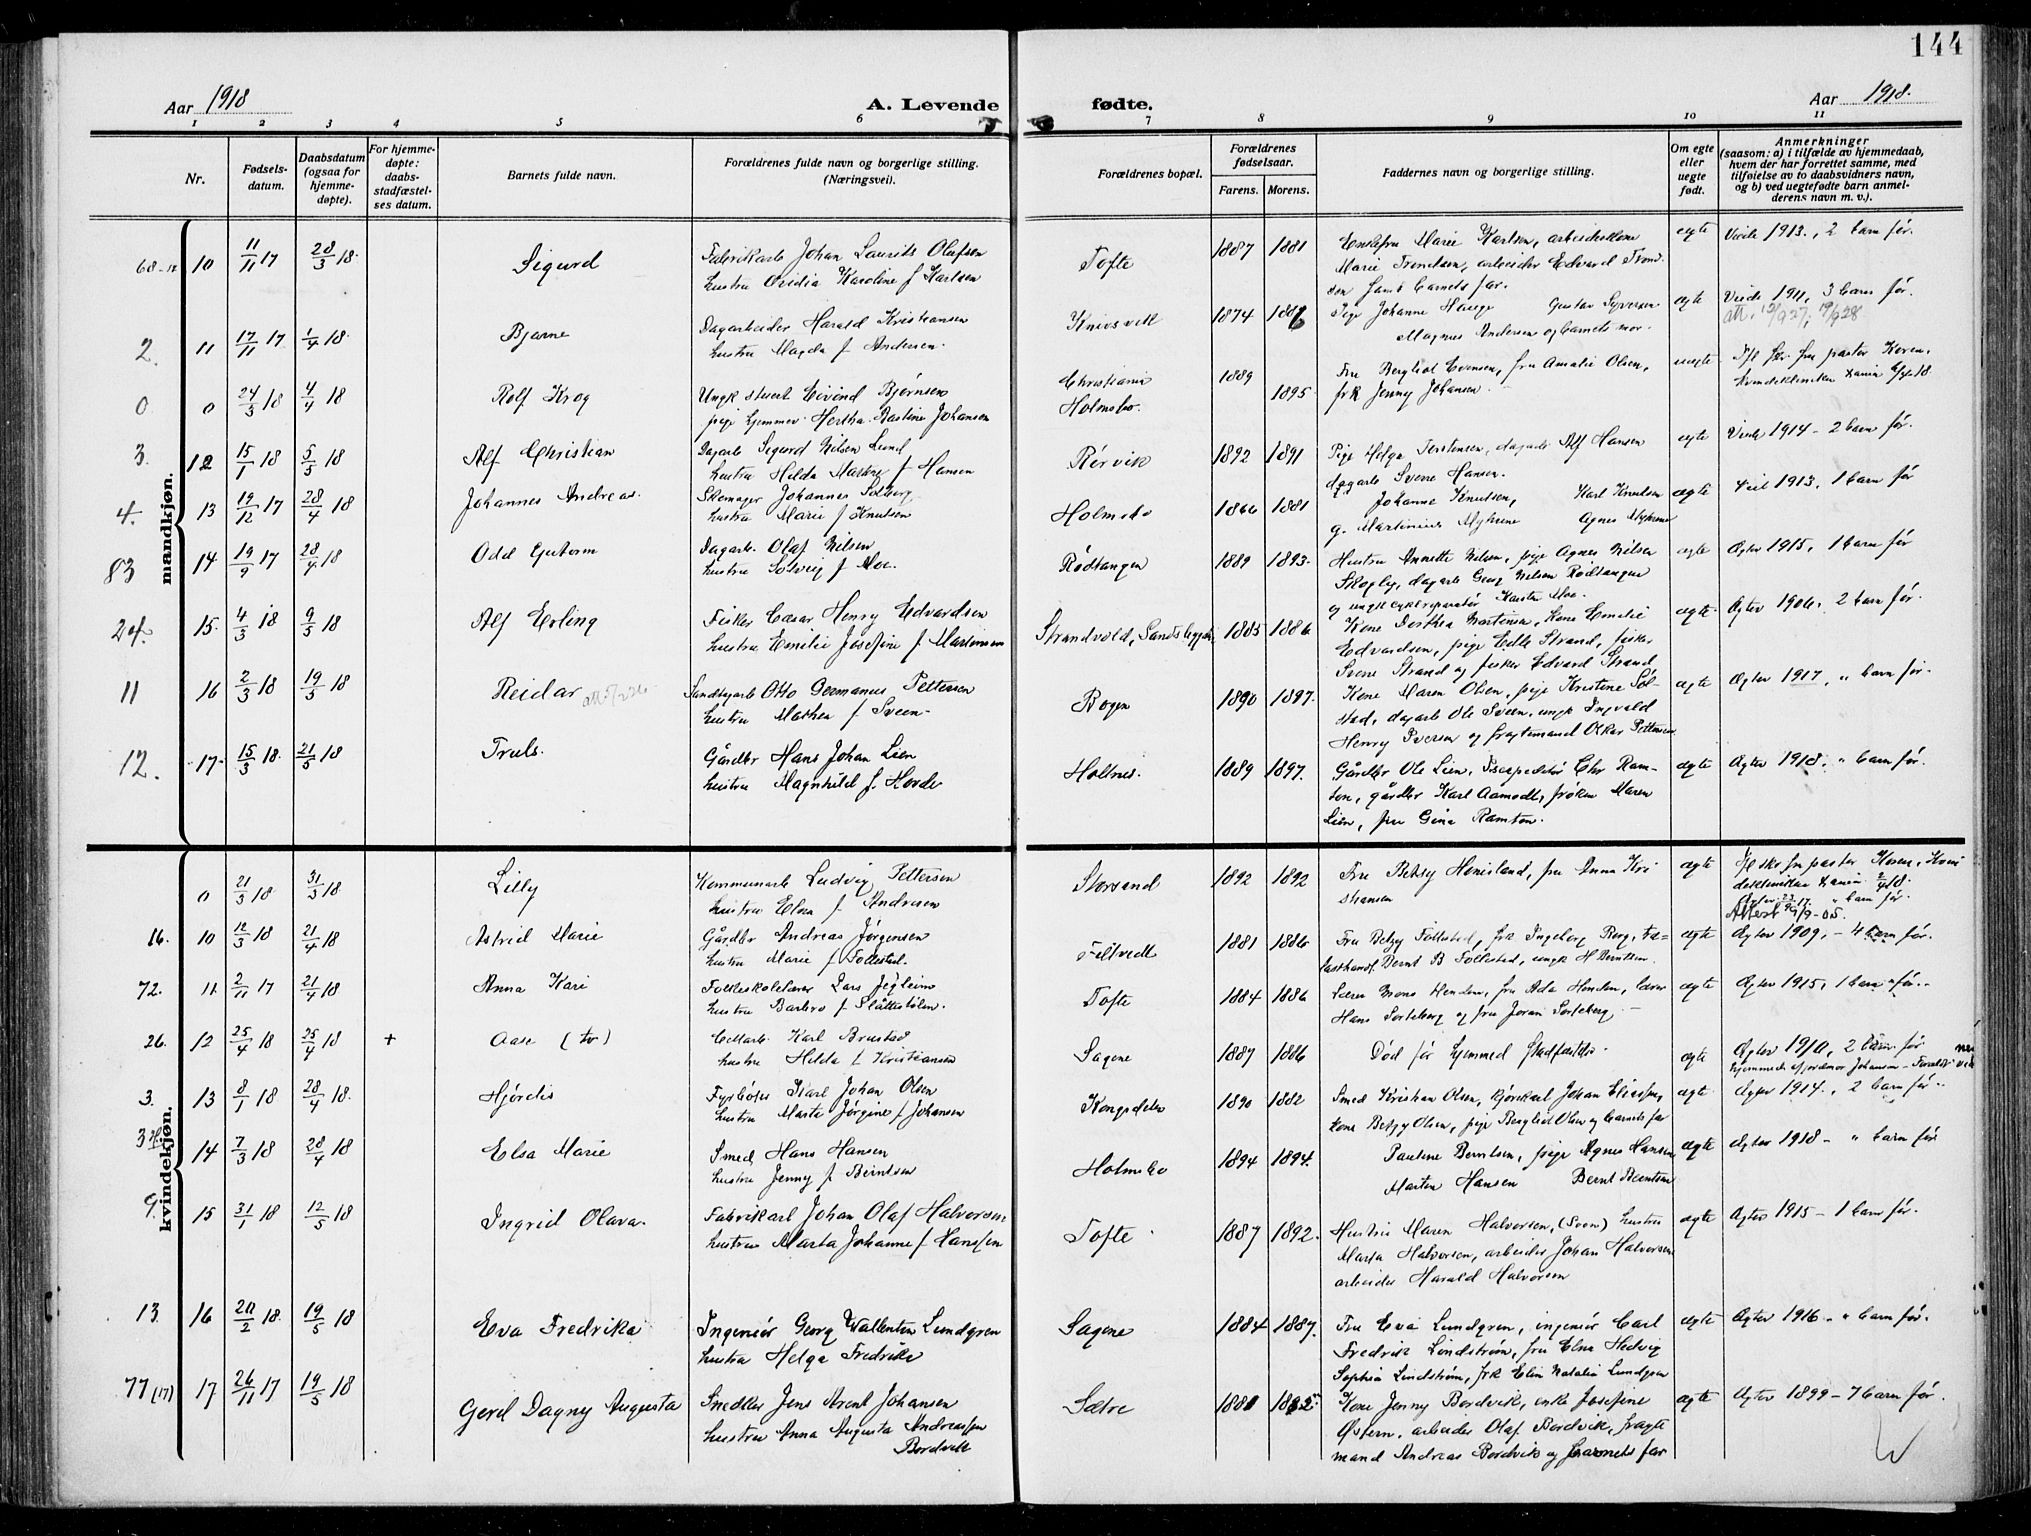 144
Aar 1918
A. Levende fødte.
Aar 1918.
1 2 3 4 5 6 7 8 9 10 11
Nr.
Fødsels-
datum.
Daabsdatum
(ogsaa for
hjemme-
døpte).
For hjemme-
døpte:
daabs-
stadfæstel-
ses datum.
Barnets fulde navn.
Forældrenes fulde navn og borgerlige stilling.
(Næringsvei).
Forældrenes bopæl.
Forældrenes
fødselsaar.
Farens. Morens.
Faddernes navn og borgerlige stilling.
Om egte
eller
uegte
født.
Anmerkninger
(saasom: a) i tilfælde av hjemmedaab,
hvem der har forrettet samme, med
tilføielse av to daabsvidners navn,
og b) ved uegtefødte barn anmel-
derens navn m. v.).
mandkjøn.
10 11/11 17 28/3 18. Sigurd Fabrikarb Johan Laurits Olafsen
hustru Ovidia Karoline f Karlsen
Tofte 1887 1881 Enkefru Marie Karlsen, arbeiderkone
Marie Trondsen, arbeider Edvard Trond-
sen samt barnets far.
egte Viede 1913., 2 barn før.
2. 11 17/11 17 1/4 18. Bjarne Dagarbeider Harald Kristiansen
hustru Magda f Andersen.
Knivsvik 1874 1886 Pige Johanne Hauge Gustav Syversen
Magnus Andersen og barnets mor.
egte Viede 1911, 3 barn før.
0. 0 24/3 18 4/4 18 Rolf Krog Ungk stuert Eivind Bjørnsen
pige hjemmev. Hertha Bastine Johansen
Christiania
Holmsbo.
1889 1895 Fru Bergliot Evensen, fru Amalie Olsen,
frk Jenny Johansen
uegte Ifl skr. fra pastor Koren,
Kvindeklinikken Xania 6/4 18.
3. 12 15/1 18 5/5 18 Alf Christian Dagarb Sigurd Nilsen Lund
hustru Hilda Marie f Hansen
Rørvik 1892 1891 Pige Helga Torstensen, dagarb Alf Hansen
dagarb Svenn Hansen.
egte Viede 1914 - 2 barn før.
4. 13 19/12 17 28/4 18 Johannes Andreas. Skomager Johannes Solberg
hustru Marie f Knutsen
Holmsbo 1866 1881 Johanne Knutsen, Karl Knutsen
g. Martinius Myhrene Agnes Myhrene
egte Viet 1913, 1 barn før
83 14 19/9 17 28/4 18 Odd Gutorm Dagarb. Olaf Nilsen
hustru Solveig f Moe.
Rødtangen 1889 1893. Hustru Annette Nilsen, pige Agnes Nilsen
Skogly, dagarb Georg Nilsen Rødtangen
og ungk cyklreparatør Karsten Moe.
egte Agtev 1915, 1 barn før
24. 15. 4/3 18 9/5 18 Alf Erling Fisker Cæsar Henry Edvardsen
hustru Emilie Josefine f Martinsen
Strandvold, Sandsbygden 1885 1886 Kone Dorthea Martinsen, kone Emilie
Edvardsen, pige Edle Strand, fisker
Svenn Strand og fisker Edvard Strand
egte Agtev 1906. 2 barn før.
11 16 2/3 18 19/5 18 Reidar Sandtagarb Otto Germanus Pettersen
hustru Mathea f Sveen.
Bogen 1890 1897. Kone Maren Olsen, pige Kristine Sol-
stad, dagarb Ole Sveen, ungk Ingvald
Henry Iversen og fragtemand Oskar Pettersen
egte Agtev 1917, " barn før.
12. 17. 15/3 18. 21/5 18 Truls. Gårdbr Hans Johan Lien
hustru Magnhild f. Horde
Holtnes. 1889 1897. Gårdbr Ole Lien, Expeditør Chr Ram-
ton, gårdbr Karl Aamodt, frøken Maren
Lien, fru Gina Ramton.
egte Agtev 1918. " barn før.
kvindekjøn.
0 21/3 18 31/3 18 Lilly Kommunearb Ludvig Pettersen
hustru Elsa f Andresen
Storsand 1892 1892 Fru Betsy Hemsland, fru Anna Kri
stiansen
egte Ifl skr. fra pastor Koren, Kvin
deklinikken Xania 2/4 18.
16. 10 12/3 18 21/4 18 Astrid Marie Gårdbr Andreas Jørgensen
hustru Marie f Tollestad.
Filtvedt 1881 1886 Fru Betzy Tollestad, frk Ingeborg Berg, tra=
lasthandl Bernt B Tollestad, ungk H Berntsen.
egte Agtev 1909, - 4 barn før.
72. 11. 2/11 17 21/4 18 Anna Kari Folkeskolelærer Lars Jegleim
hustru Barbro f Slåttestølen.
Tofte 1884 1886 Lærer Mons Henden, fru Ada Henden, lærer
Hans Sorteberg og fru Joran Sorteberg
egte Agtev 1915, 1 barn før.
26. 12 25/4 18 25/4 18 + Aase (tv) Cellarb. Karl Brustad
hustru Hilda f Kristiansen
Sagene 1887 1886 Død før hjemmed Stadfæstelse.
egte Agtev 1910, 2 barn før
hjemmedt af jordmor Johansen
3. 13 8/1 18 28/4 18. Hjørdis Fyrbøter Karl Johan Olsen
hustru Marte Jørgine f Johansen
Kongsdelen 1890 1882 Smed Kristian Olsen, kjørekarl Johan Eliassen,
kone Betzy Olsen, pige Bergliot Olsen og barnets far
egte. Agtev 1914., 2 barn før..
14 7/3 18 28/4 18 Elsa Marie Smed Hans Hansen
hustru Jenny f Berntsen
Holmsbo 1894 1894. Pauline Berntsen, pige Agnes Hansen
Marten Hansen Bernt Berntsen
egte Agtev 1918 - " barn før
9. 15 31/1 18 12/5 18 Ingrid Olava. Fabrikarb Johan Olaf Halvorsen
hustru Marta Johanne f Hanssen
Tofte 1887 1892. Hustru Maren Halvorsen, (Sveen) hustru
Marta Halvorsen, arbeider Johan Halvorsen
arbeider Harald Halvorsen
egte Agtev 1915 - 1 barn før.
13. 16 20/2 18. 19/5 18 Eva Fredrika Ingeniør Georg Wallentin Lundgren
hustru Helga Fredrika
Sagene 1884 1887. Fru Eva Lundgren, ingeniør Carl
Fredrik Lindstrøm, fru Elna Hedvig
Sophia Lindstrøm, frk Elin Natalia Lundgren
egte Agtev 1916. " barn før.
77 (17) 17 26/11 17 19/5 18 Gerd Dagny Augusta Snedker Jens Arent Johansen
hustru Anna Augusta Andreassen
Bordvik
Sætre 1881 1882 Kone Jenny Bordvik, enke Josefine
Østern, arbeider Olaf Bordvik, fragte
mand Andreas Bordvik og barnets far
egte Agtev 1899 - 7 barn før.